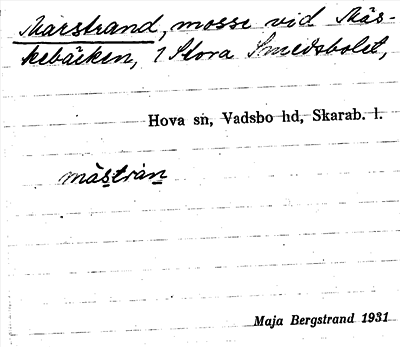 Marstrand, mosse vid Mäs-
kebäcken, 1 Stora Smedsbolet,
Hova sn, Vadsbo hd, Skarab. l.
måstran
Maja Bergstrand 1931